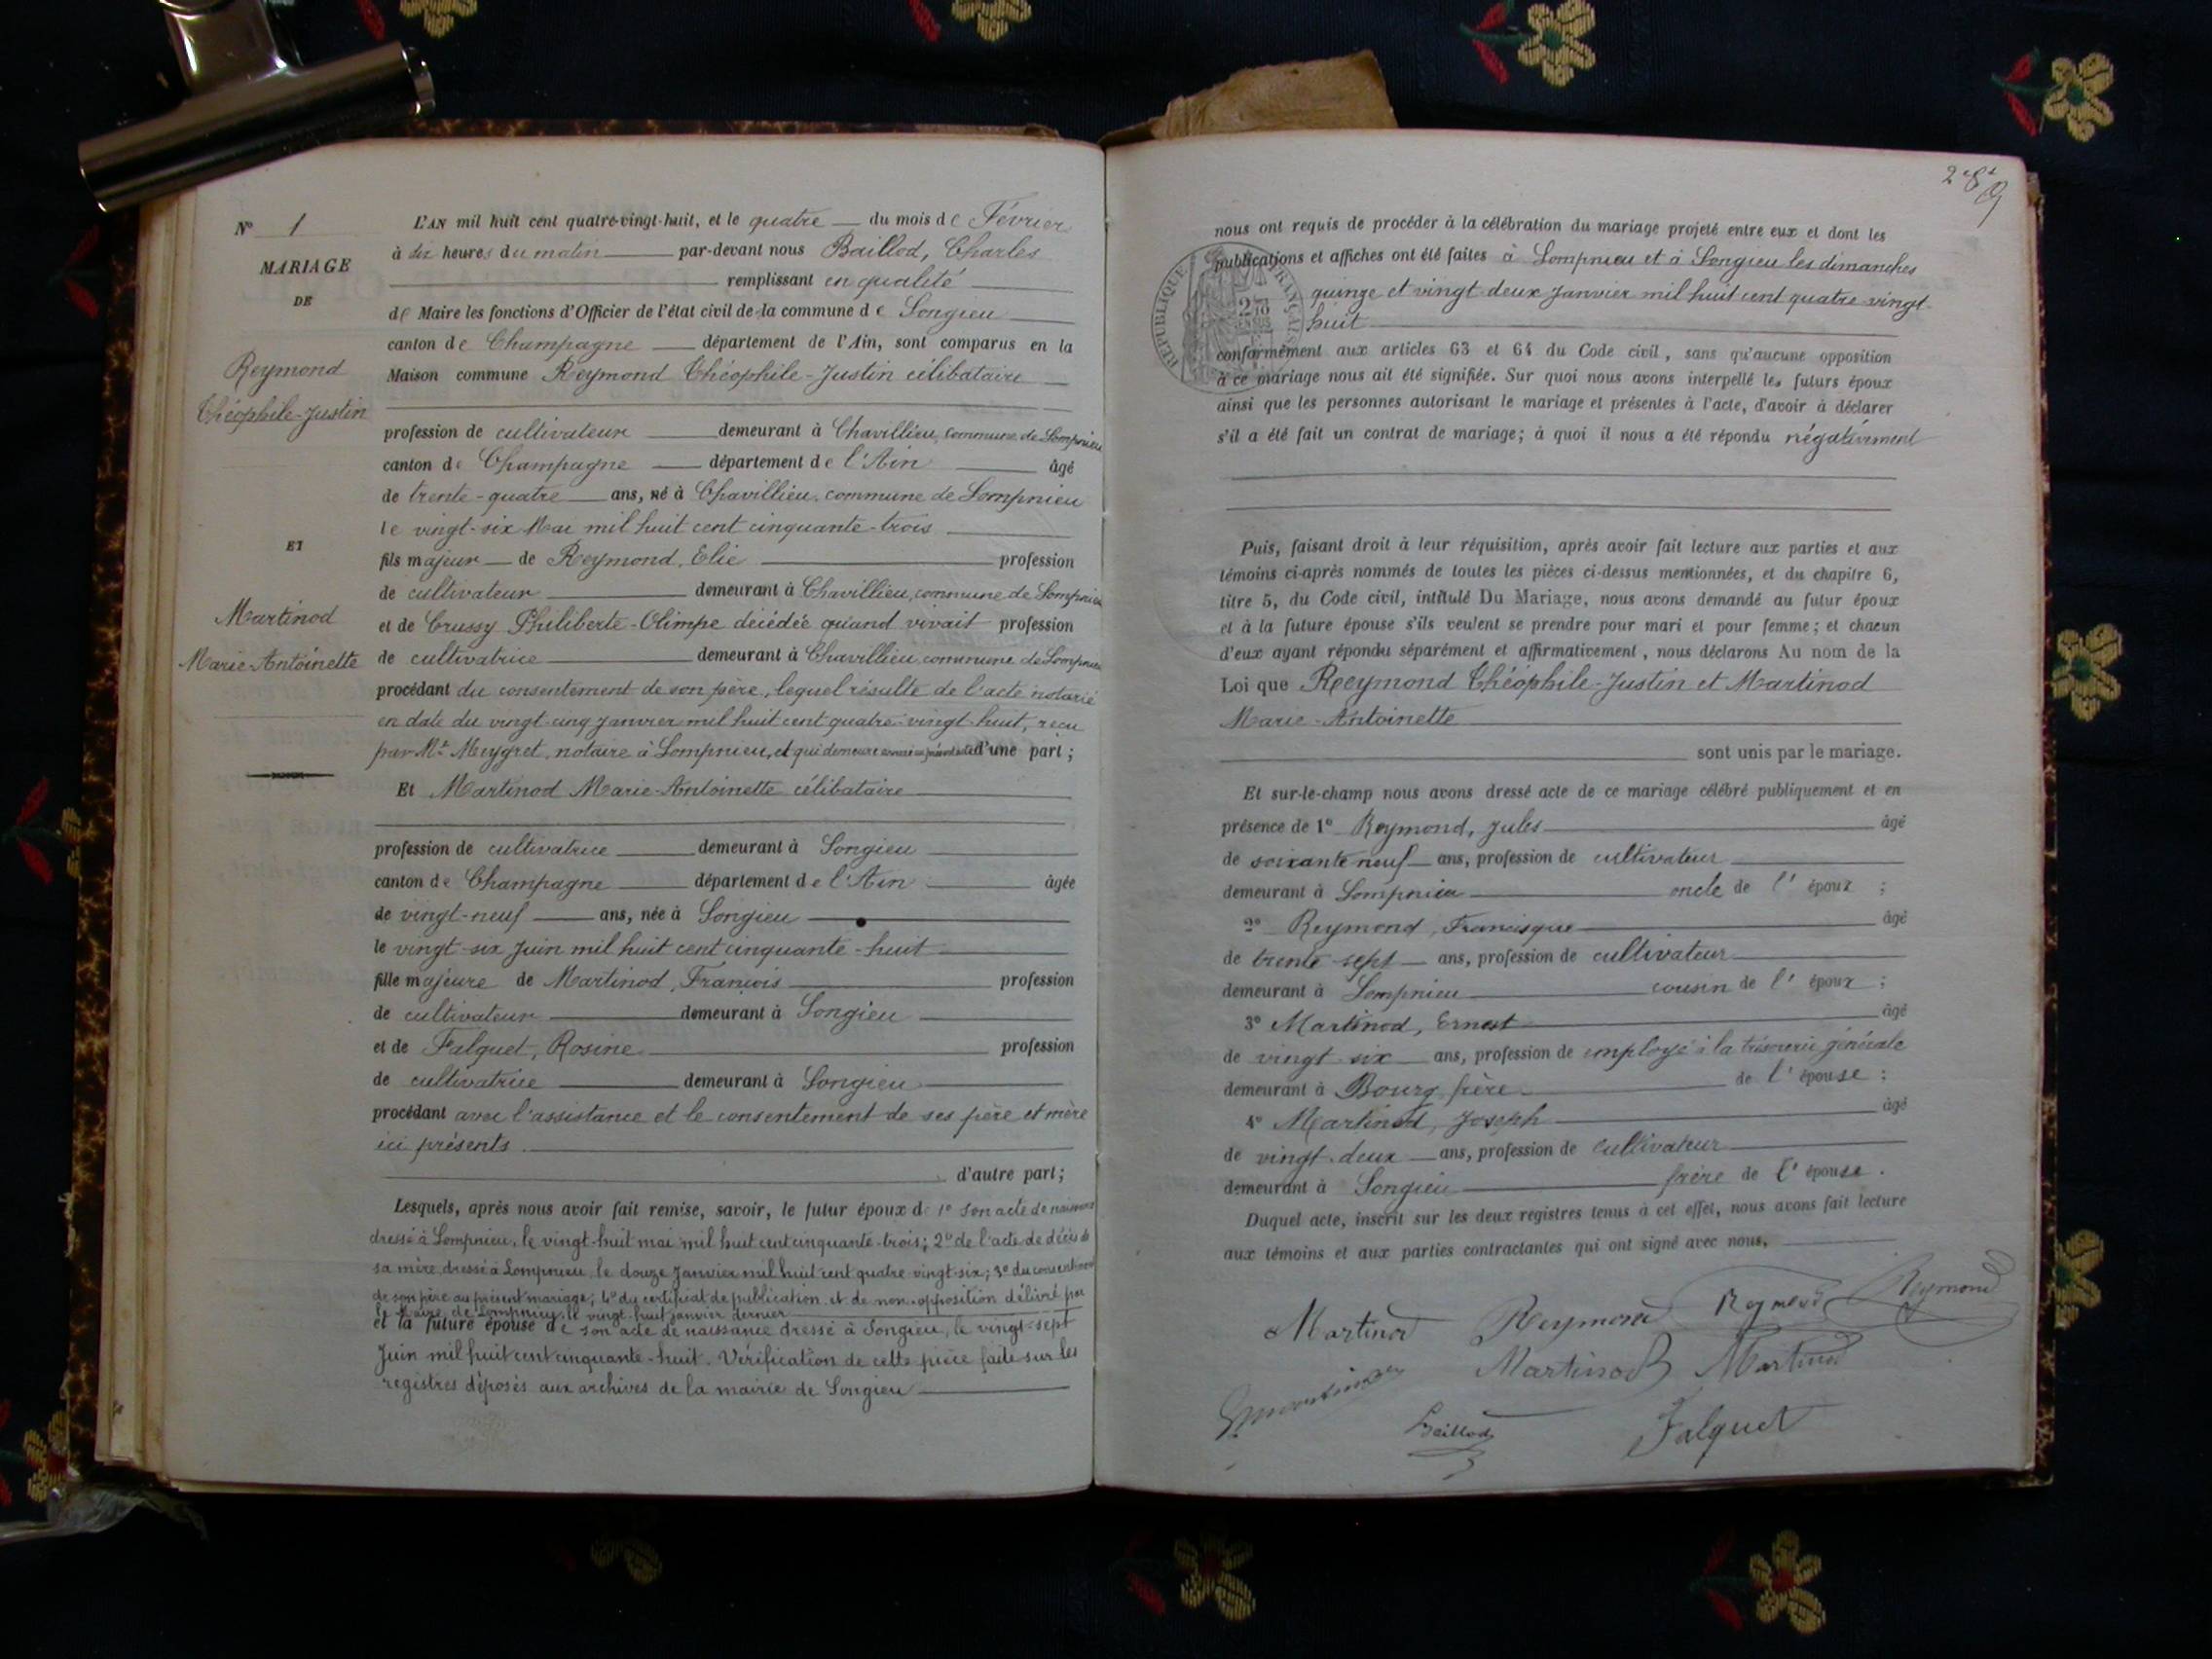 N° 1
MARIAGE
DE
Reymond
Théophile-Justin
ET
Martinod
Marie-Antoinette
L'AN mil huit cent quatre-vingt-huit, et le quatre du mois de Février
à dix heures du matin par-devant nous Baillod, Charles
remplissant en qualité
de Maire les fonctions d'Officier de l'état civil de la commune de Songieu
canton de Champagne département de l'Ain, sont comparus en la
Maison commune Reymond Théophile-Justin célibataire
profession de cultivateur demeurant à Chavillieu, commune de Lompnieu
canton de Champagne département de l'Ain âgé
de trente-quatre ans, né à Chavillieu, commune de Lompnieu
le vingt-six Mai mil huit cent cinquante-trois
fils majeur de Reymond, Elie profession
de cultivateur demeurant à Chavillieu, commune de Lompnieu
et de Crussy Philiberte-Olimpe décédée quand vivait profession
de cultivatrice demeurant à Chavillieu, commune de Lompnieu
procédant du consentement de son père, lequel résulte de l'acte notarié
en date du vingt-cinq janvier mil huit cent quatre-vingt-huit, reçu
par Me Meygret, notaire à Lompnieu, et qui demeure d'une part ;
Et Martinod Marie-Antoinette célibataire
profession de cultivatrice demeurant à Songieu
canton de Champagne département de l'Ain âgée
de vingt-neuf ans, née à Songieu
le vingt-six Juin mil huit cent cinquante-huit
fille majeure de Martinod, François profession
de cultivateur demeurant à Songieu
et de Falquet, Rosine profession
de cultivatrice demeurant à Songieu
procédant avec l'assistance et le consentement de ses père et mère
ici présents
d'autre part ;
Lesquels, après nous avoir fait remise, savoir, le futur époux d 1° son acte de naissance
dressé à Lompnieu, le vingt-huit mai mil huit cent cinquante-trois; 2° de l'acte de décès de
sa mère, dressé à Lompnieu, le douze Janvier mil huit cent quatre-vingt-six; 3° du consentement
de son père au présent mariage; 4° du certificat de publication et de non-opposition délivré par
le Maire de Lompnieu, le vingt-huit janvier dernier
et la future épouse de son acte de naissance dressé à Songieu, le vingt-sept
Juin mil huit cent cinquante-huit. Vérification de cette pièce faite sur les
registres déposés aux archives de la mairie de Songieu
nous ont requis de procéder à la célébration du mariage projeté entre eux et dont les
publications et affiches ont été faites à Lompnieu et à Songieu les dimanches
quinze et vingt-deux Janvier mil huit cent quatre-vingt-
huit
REPUBLIQUE FRANÇAISE
conformément aux articles 63 et 64 du Code civil, sans qu'aucune opposition
à ce mariage nous ait été signifiée. Sur quoi nous avons interpellé les futurs époux
ainsi que les personnes autorisant le mariage et présentes à l'acte, d'avoir à déclarer
s'il a été fait un contrat de mariage; à quoi il nous a été répondu négativement
Puis, faisant droit à leur réquisition, après avoir fait lecture aux parties et aux
témoins ci-après nommés de toutes les pièces ci-dessus mentionnées, et du chapitre 6,
titre 5, du Code civil, intitulé Du Mariage, nous avons demandé au futur époux
et à la future épouse s'ils veulent se prendre pour mari et pour femme; et chacun
d'eux ayant répondu séparément et affirmativement, nous déclarons Au nom de la
Loi que Reymond Théophile-Justin et Martinod
Marie-Antoinette
sont unis par le mariage.
Et sur-le-champ nous avons dressé acte de ce mariage célébré publiquement et en
présence de 1° Reymond, Jules âgé
de soixante neuf ans, profession de cultivateur
demeurant à Lompnieu oncle de l'époux ;
2° Reymond, Francisque âgé
de trente-sept ans, profession de cultivateur
demeurant à Lompnieu cousin de l'époux ;
3° Martinod, Ernest âgé
de vingt six ans, profession de employé à la trésorerie générale
demeurant à Bourg, frère de l'épouse ;
4° Martinod, Joseph âgé
de vingt-deux ans, profession de cultivateur
demeurant à Songieu frère de l'épouse.
Duquel acte, inscrit sur les deux registres tenus à cet effet, nous avons fait lecture
aux témoins et aux parties contractantes qui ont signé avec nous,
Martinod Reymond Reymond Reymond
Martinod Martinod
Baillod Falquet